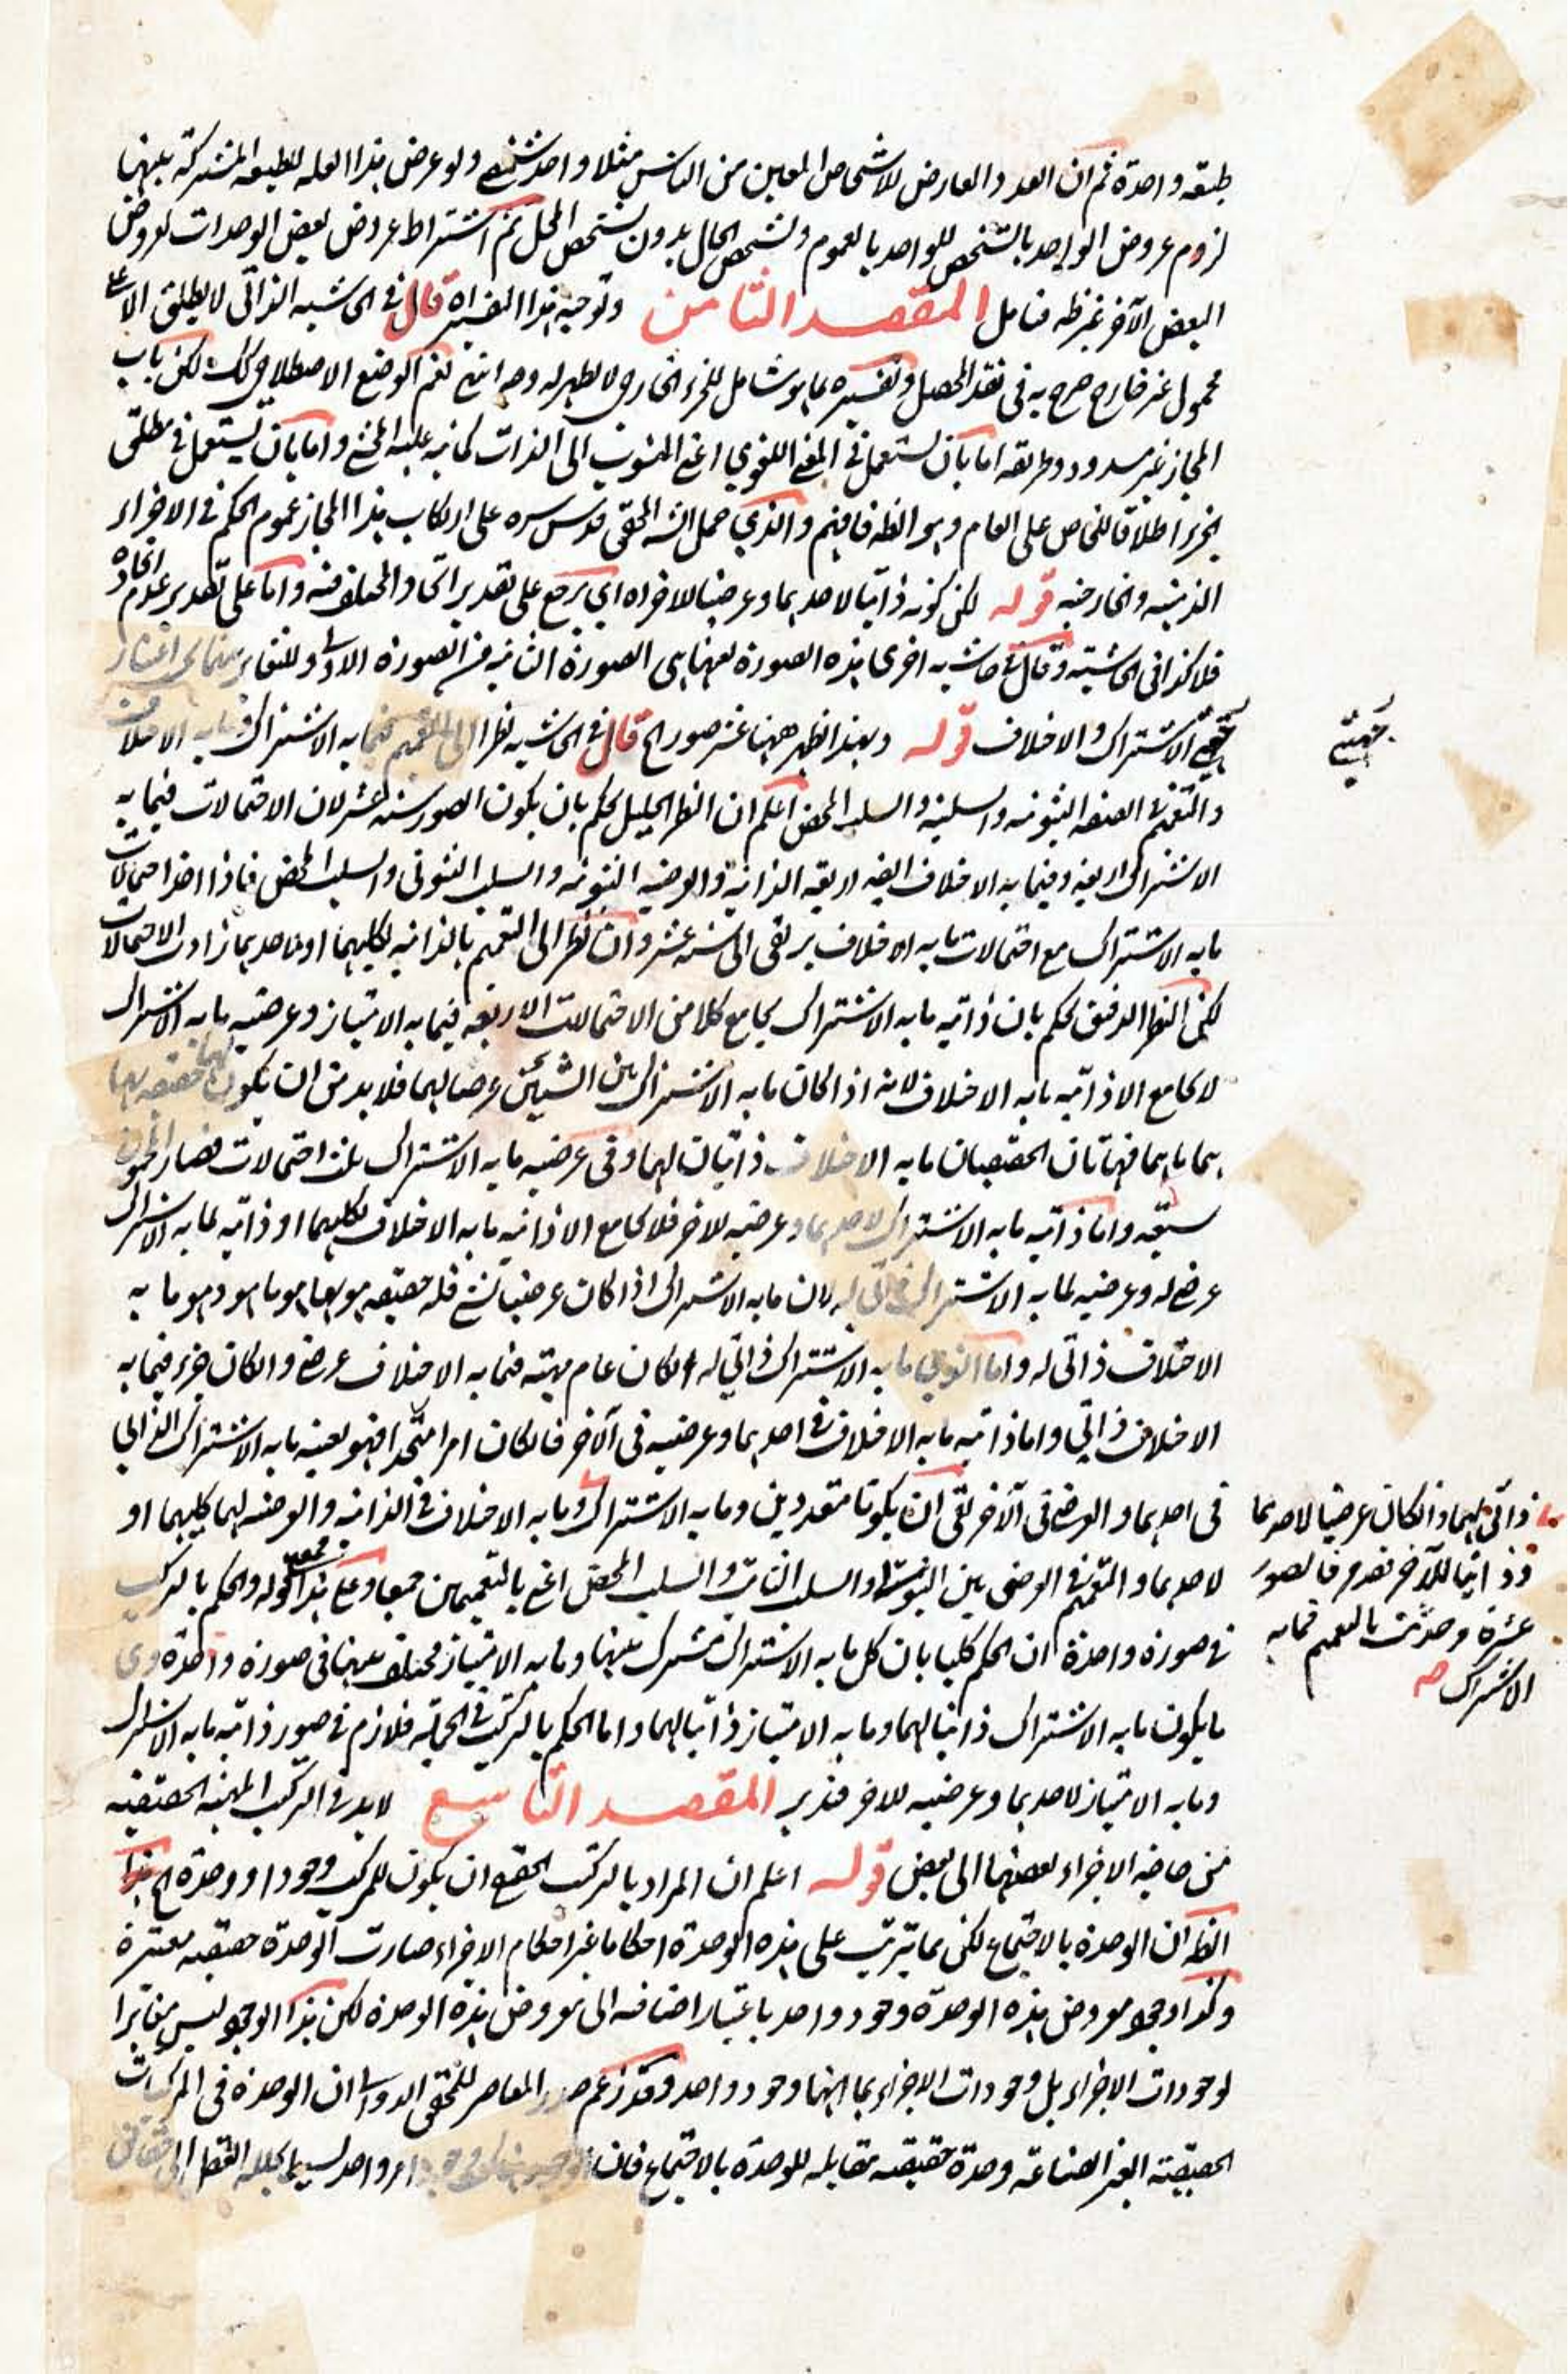 طبقه واحدة ثم ان العدد العارض للاشخاص المعين من الناس مثلا واحد شخصي ولو عرض هذا العلة للطبيعة المشتركة بينهما
لزوم عروض الواحد بالشخص للواحد بالعموم وتشخص الحال بدون تشخص المحل ثم اشتراط عروض بعض الوحدات لعروض
البعض الآخر غير ظه فتامل المقصد الثامن وتوجيه هذا التفسير اه قال في الحاشية الذاتي لا يطلق الا على
محمول غير خارج صرح به في نقد المحصل وتفسيره بما هو شامل للجزء الخارجي لا يظهر له وجه انتهى نعم الوضع الاصطلاحي كك لكن باب
المجاز غير مسدود وطريقه اما بان يستعمل في المعنى اللغوي اعني المنسوب الى الذات كما نبه عليه المحشي واما بان يستعمل في مطلق
الجزء اطلاقا للخاص على العام وهو الظه فافهم والذي حمل الشه المحقق قدس سره على ارتكاب هذا المجاز عموم الحكم في الاجزاء
الذهنية والخارجية قوله لكن كونه ذاتيا لاحدهما وعرضيا للآخر اه اي يرجع على تقدير اتحاد المختلف فيه واما على تقدير عدم اتحاده
فلا كذا في الحاشية وقال في حاشية اخرى هذه الصورة بعينها هي الصورة الثانية من الصورة الاولى والتغاير بينهما في اعتبار
جهتي الاشتراك والاختلاف قوله وبهذا ظهر ههنا عشر صور اه قال في الحاشية نظرا الى التعميم فيما به الاشتراك وما به الاختلاف من
والتعميم في الصفة الثبوتية والسلبية والسلب المحض اعلم ان النظر الجليل يحكم بان يكون الصور ستة عشر لان الاحتمالات فيما به
الاشتراك اربعة وفيما به الاختلاف ايضه اربعة الذاتية والعرضية الثبوتية والسلب الثبوتي والسلب المحض فاذا اخذ احتمالات
ما به الاشتراك مع احتمالات ما به الاختلاف يرتقى الى ستة عشر وان نظر الى التعميم بالذاتية لكليهما او لاحدهما زادت الاحتمالات
لكن النظر الدقيق يحكم بان ذاتية ما به الاشتراك يجامع كلا من الاحتمالات الاربعة فيما به الامتياز وعرضية ما به الاشتراك
لا يجامع الا ذاتية ما به الاختلاف لانه اذا كان ما به الاشتراك بين الشيئين عرضيا لهما فلا بد من ان يكون لهما حقيقة بها
هما ما هما فهاتان الحقيقتان ما به الاختلاف ذاتيان لهما وفي عرضية ما به الاشتراك ثلث احتمالات فصار المجموع
سبعة واما ذاتية ما به الاشتراك لاحدهما وعرضيه للآخر فلا يجامع الا ذاتية ما به الاختلاف لكليهما او ذاتيه لما به الاشتراك
عرضي له وعرضيه لما به الاشتراك ذاتي له لان ما به الاشتراك اذا كان عرضيا لشيء فله حقيقة هو بها هو ما هو وهو ما به
الاختلاف ذاتي له واما الذي ما به الاشتراك ذاتي له ان كان تمام مهيته فما به الاختلاف عرضي وان كان جزء فما به
الاختلاف ذاتي واما ذاتيه ما به الاختلاف في احدهما وعرضيه في الآخر فان كان امرا متحدا فهو بعينه ما به الاشتراك الذاتي
في احدهما والعرضي في الآخر بقى ان يكونا متعددين وما به الاشتراك وما به الاختلاف في الذاتية والعرضيه لهما كليهما او
ذاتي لهما وان كان عرضيا لاحدهما
وذاتيا للآخر فقد مر فالصور
عشرة وحدثت بالتعميم فيما به
الاشتراك صه
لاحدهما والتعميم في العرضي بين الثبوتية والسلب الثابت والسلب المحض اعني بالتعميمين جميعا وعلى هذا قوله والحكم بالتركيب
في صورة واحدة ان الحكم كليا بان كل ما به الاشتراك مشترك بينهما وما به الامتياز مختلف بينهما في صورة واحدة وهي
ما يكون ما به الاشتراك ذاتيا لهما وما به الامتياز ذاتيا لهما واما الحكم بالتركيب في الجملة فلازم في صور ذاتيه ما به الاشتراك
وما به الامتياز لاحدهما وعرضيه للآخر فتدبر المقصد التاسع لا بد في تركيب المهية الحقيقيه
من حاجة الاجزاء بعضها الى بعض قوله اعلم ان المراد بالمركب الحقيقي ان يكون للمركب وجود او وحدة اه هذا
الظه ان الوحدة بالاجتماع لكن بما يترتب على هذه الوحدة احكاما غير احكام الاجزاء صارت الوحدة حقيقيه معتبرة
وكذا وجود معروض هذه الوحدة وجود واحد باعتبار اضافته الى معروض هذه الوحدة لكن هذا الوجود ليس مغايرا
لوجودات الاجزاء بل وجودات الاجزاء بما انها وجود واحد وقد زعم صدر المعاصر للمحقق الدواني ان الوحدة في المركبات
الحقيقية الغير الصناعية وحدة حقيقيه مقابله للوحدة بالاجتماع فان امر واحد
جهتي